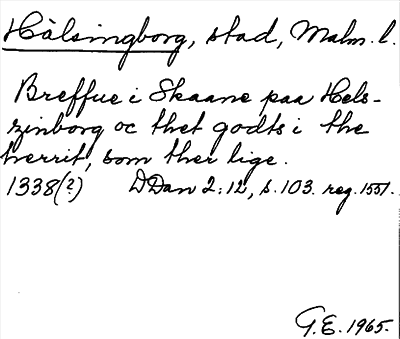 Hälsingborg, stad, Malm. l.
Breffue i Skaane paa Hels-
zinborg oc thet godts i the
herrit, som ther lige.
1338(?) DDan 2:12, s. 103. reg. 1551.
G.E. 1965.